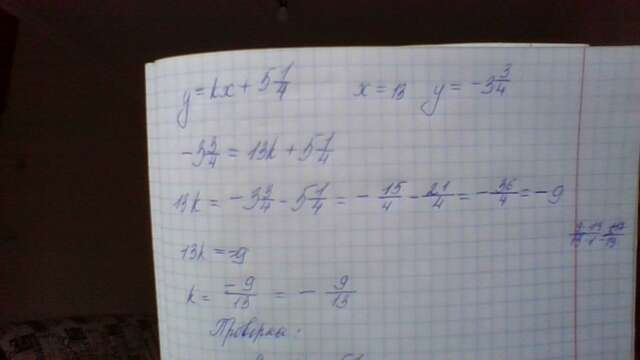 y = kx + 5 1/4    x = 13    y = -3 3/4
-3 3/4 = 13k + 5 1/4
13k = -3 3/4 - 5 1/4 = - 15/4 - 21/4 = - 36/4 = -9
13k = -9
k = -9/13 = - 9/13
Проверка: